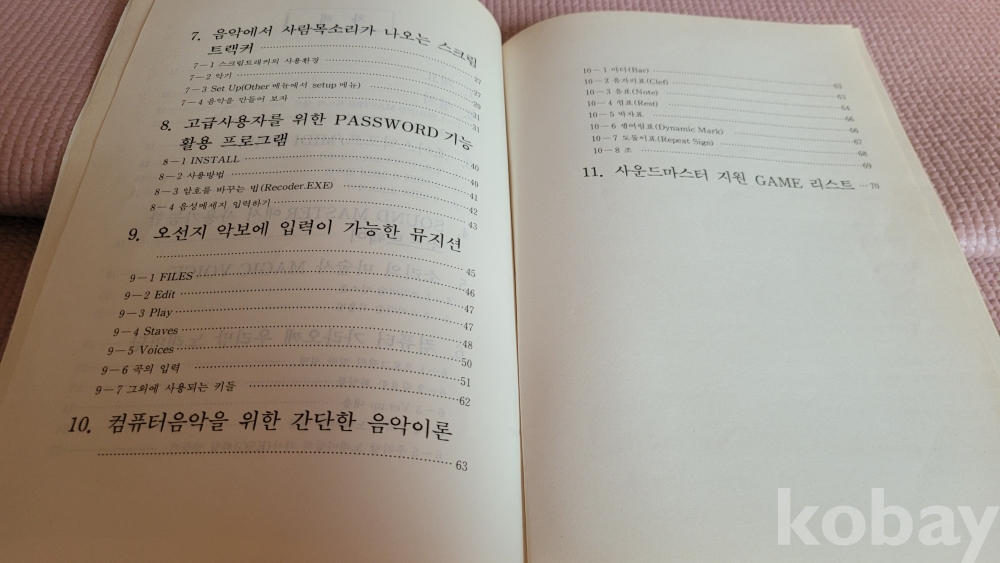 7. 음악에서 사람목소리가 나오는 스크림
트랙커 ········ 27
7－1 스크림트래커의 사용환경 ········ 27
7－2 악기 ········ 29
7－3 Set Up(Other 메뉴에서 setup 메뉴) ········ 31
7－4 음악을 만들어 보자 ········ 31
8. 고급사용자를 위한 PASSWORD 기능
활용 프로그램 ········ 40
8－1 INSTALL ········ 40
8－2 사용방법 ········ 41
8－3 암호를 바꾸는 법(Recoder.EXE) ········ 42
8－4 음성메세지 입력하기 ········ 43
9. 오선지 악보에 입력이 가능한 뮤지션
········ 45
9－1 FILES ········ 46
9－2 Edit ········ 47
9－3 Play ········ 47
9－4 Staves ········ 48
9－5 Voices ········ 50
9－6 곡의 입력 ········ 51
9－7 그외에 사용되는 키들 ········ 62
10. 컴퓨터음악을 위한 간단한 음악이론
········ 63
10－1 마디(Bar) ········ 63
10－2 음자리표(Clef) ········ 63
10－3 음표(Note) ········ 64
10－4 쉼표(Rest) ········ 66
10－5 박자표 ········ 66
10－6 셈여림표(Dynamic Mark) ········ 67
10－7 도돌이표(Repeat Sign) ········ 68
10－8 조 ········ 69
11. 사운드마스터 지원 GAME 리스트 ··· 70
kobay